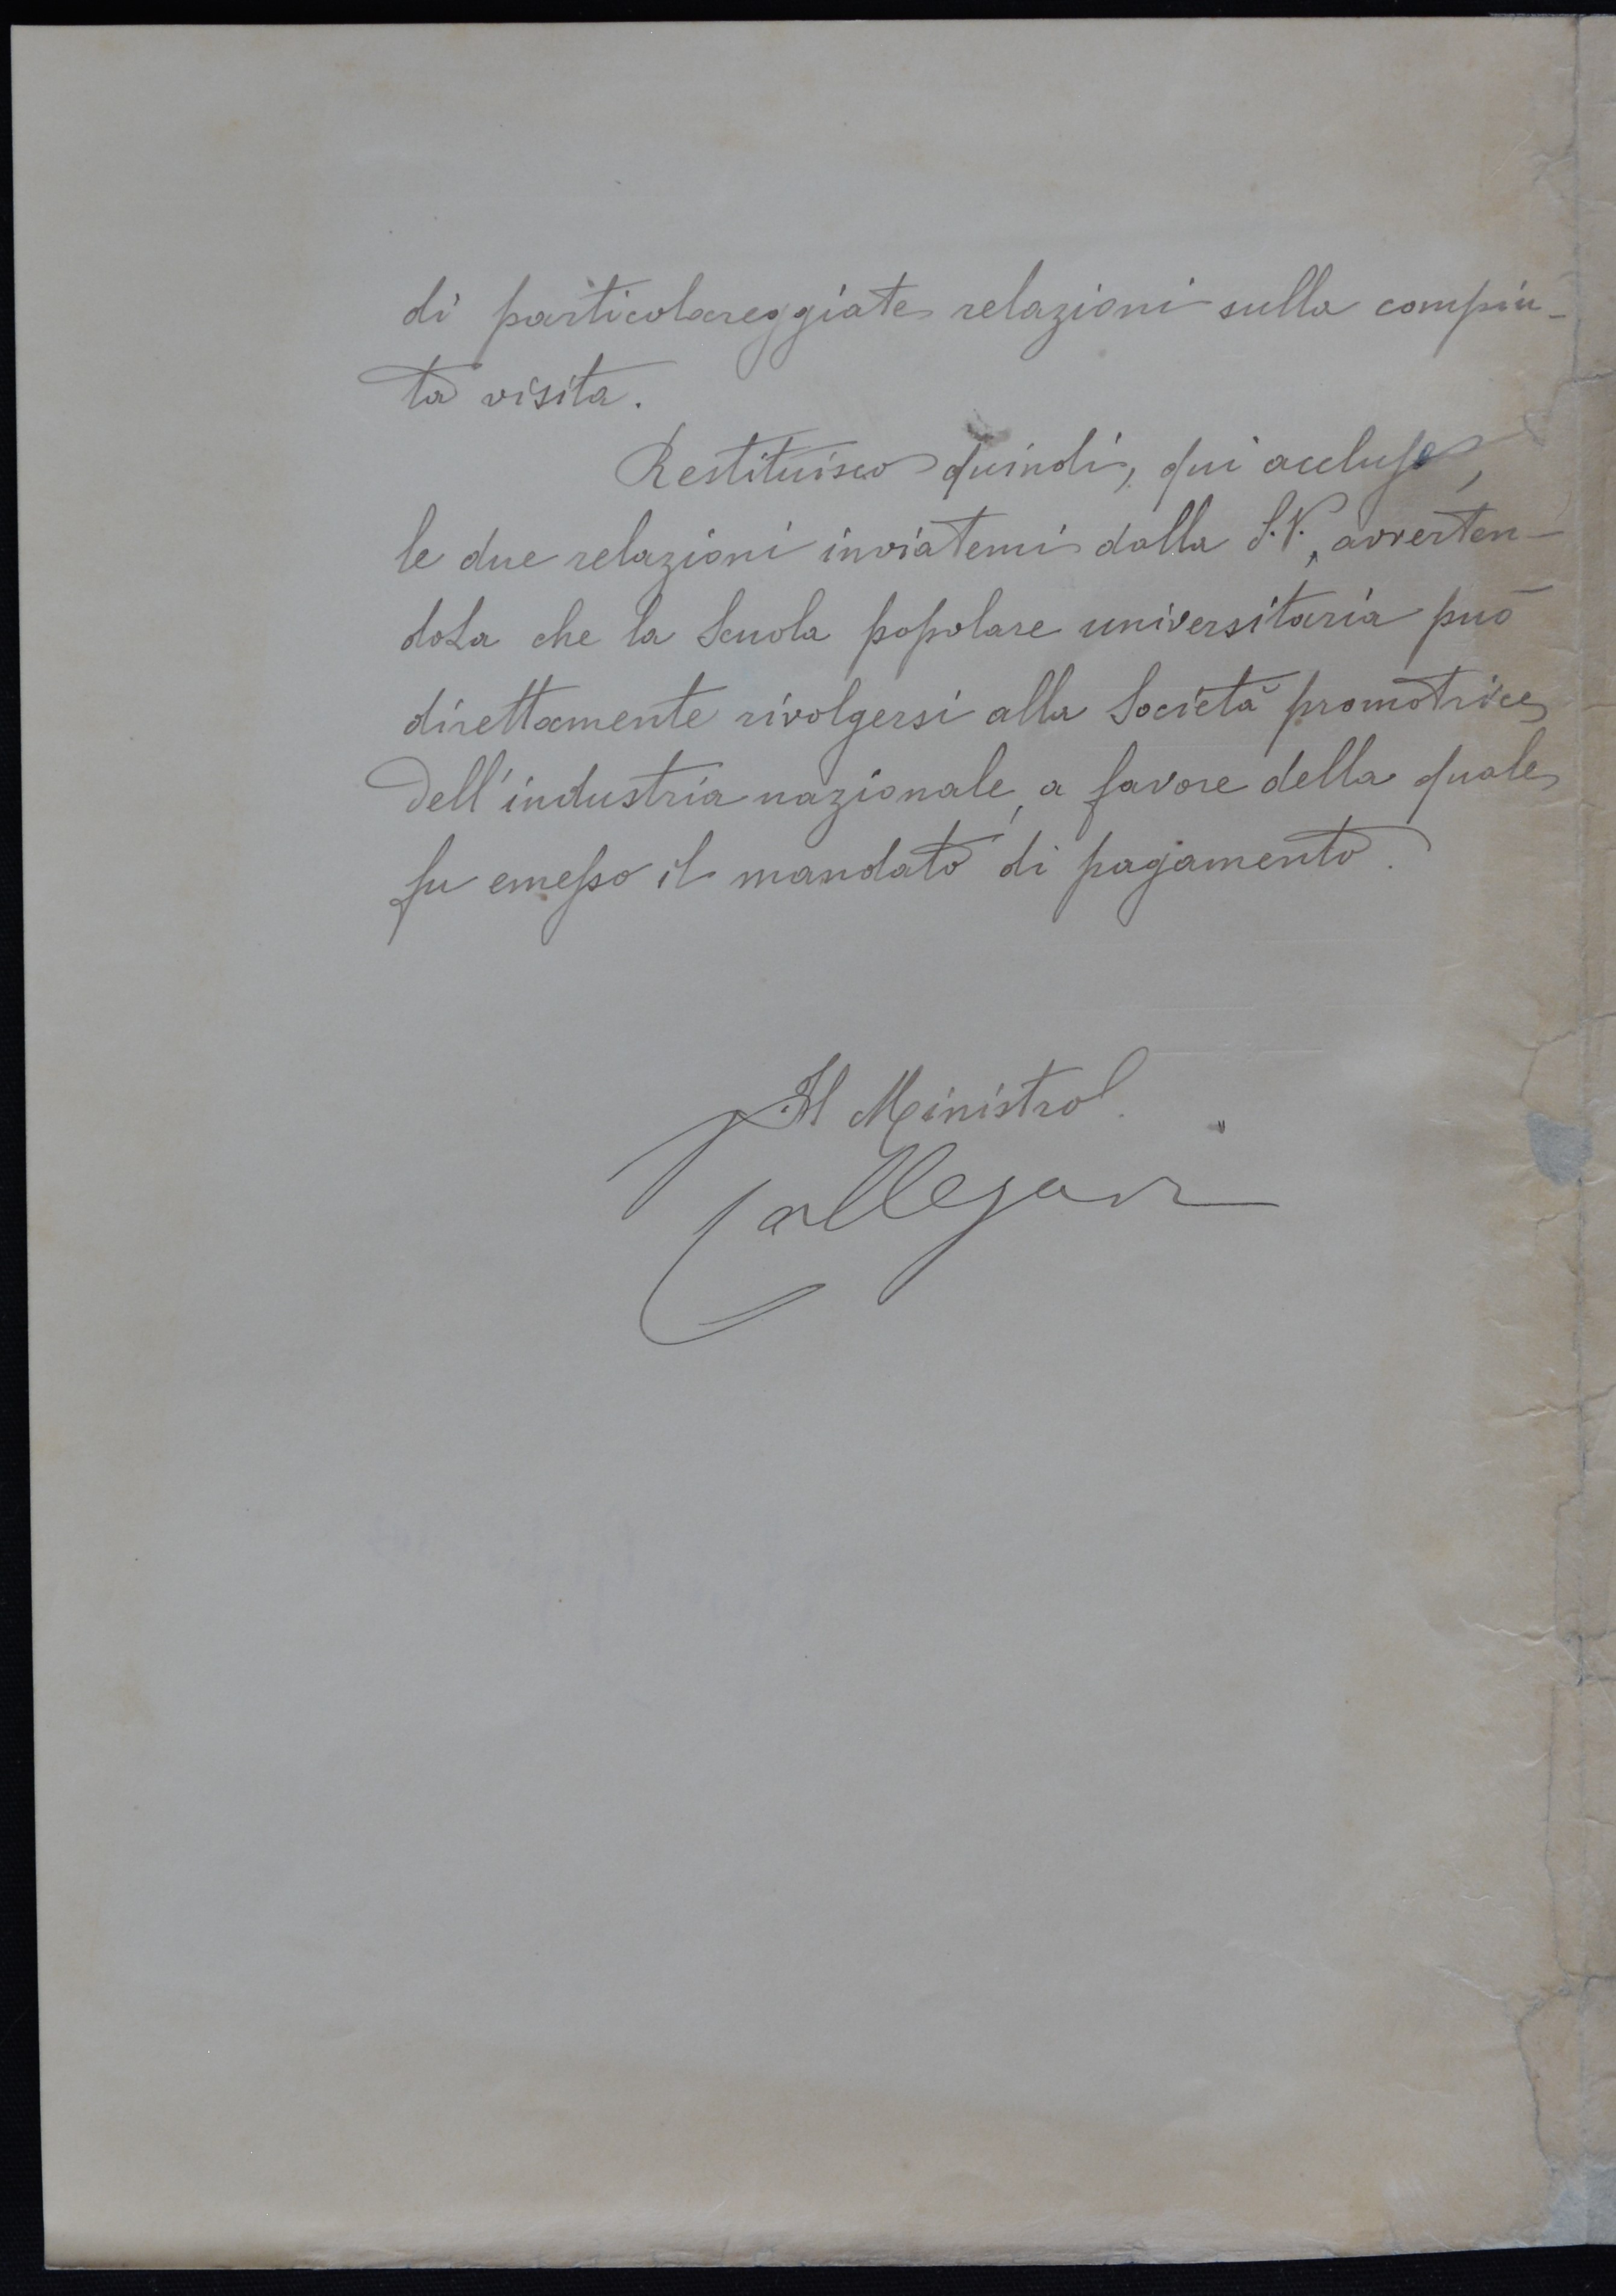 di particolareggiate relazioni sulla compiu-
ta visita.
Restituisco quindi, qui accluse,
le due relazioni inviatemi dalla S.V., avverten-
doLa che la Scuola popolare universitaria può
direttamente rivolgersi alla Società promotrice
dell'industria nazionale, a favore della quale
fu emesso il mandato di pagamento.
Il Ministro
Callegari